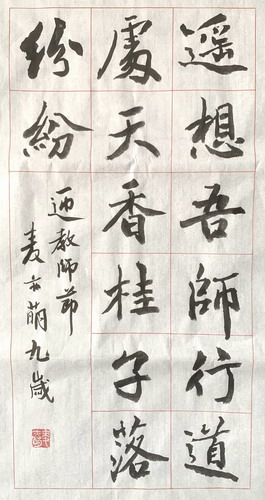 遥想吾師行道
處天香桂子落
紛紛
迎教師節
麦亦萌九歲